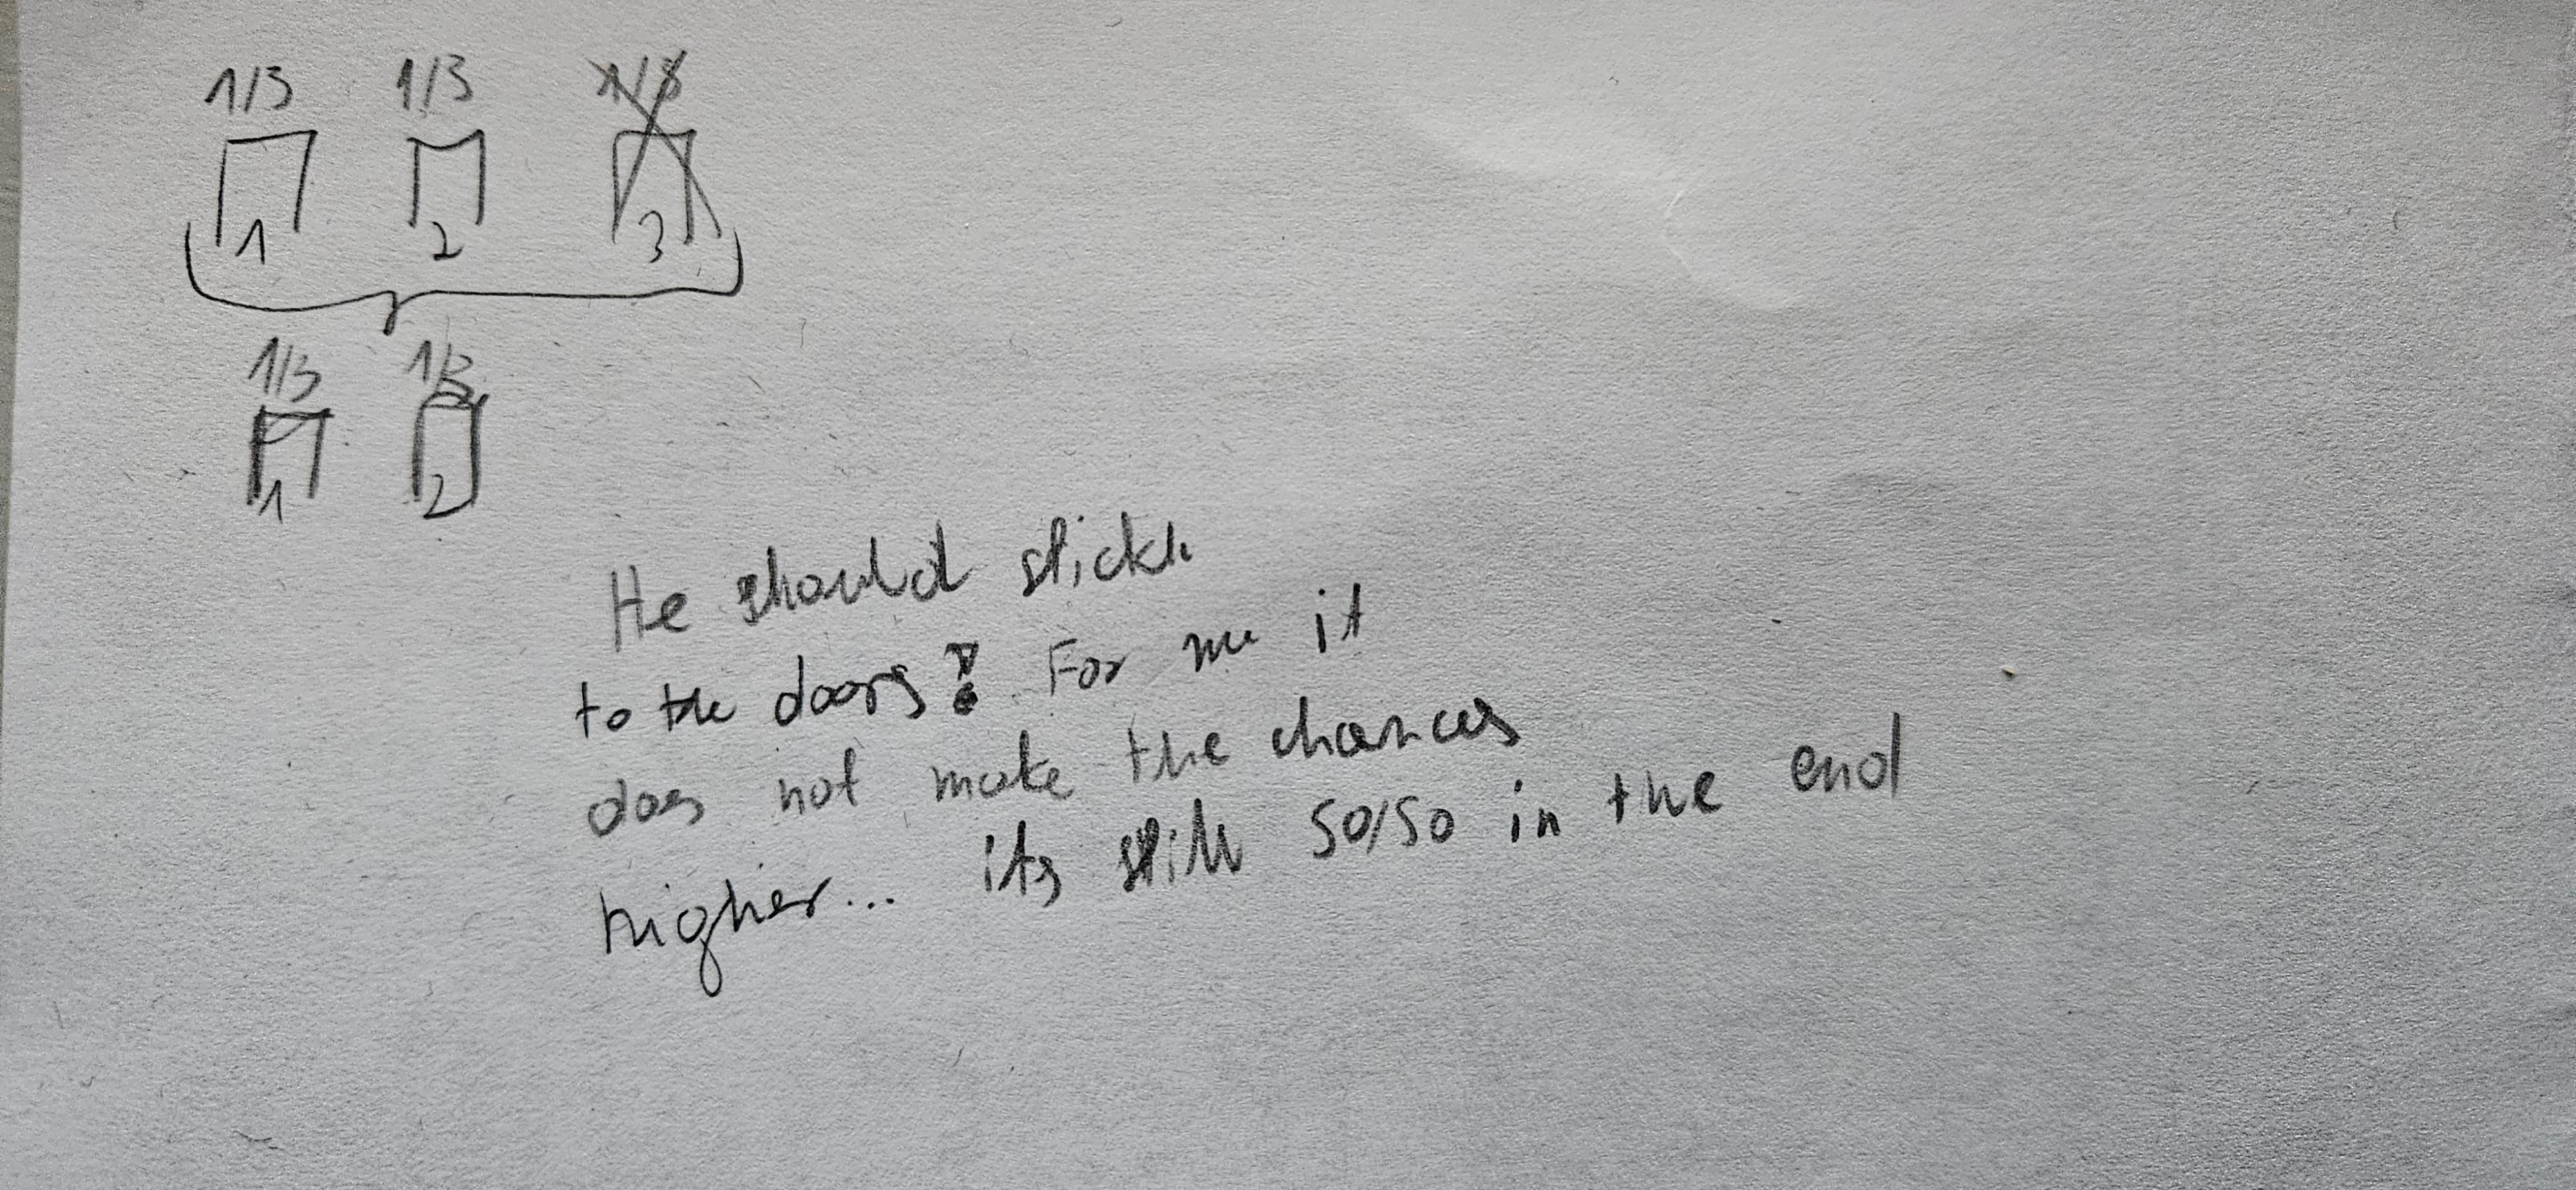 1/3 1/3 1/3
1 2 3
1/3 1/3
1 2
He should stick
to the doors? For me it
does not make the chances
higher... its still 50/50 in the end